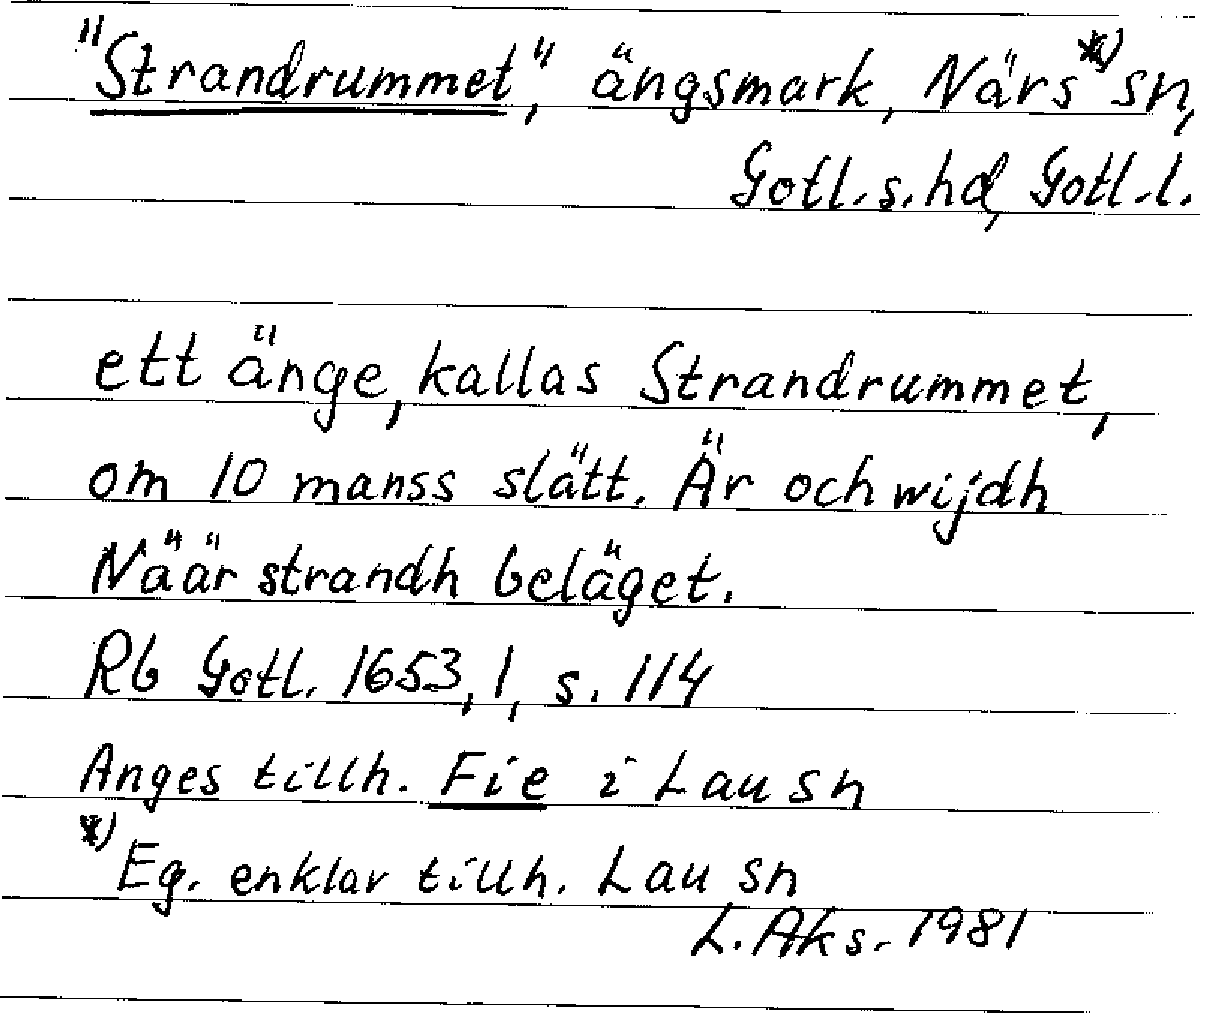 "Strandrummet", ängsmark, Närs *) sn,
Gotl. s. hd, Gotl. l.
ett änge, kallas Strandrummet,
om 10 manss slätt. Är och wijdh
Näär strandh beläget.
Rb Gotl. 1653, 1, s. 114
Anges tillh. Fie i Lau sn
*) Eg. enklav tillh. Lau sn
L. Aks. 1981